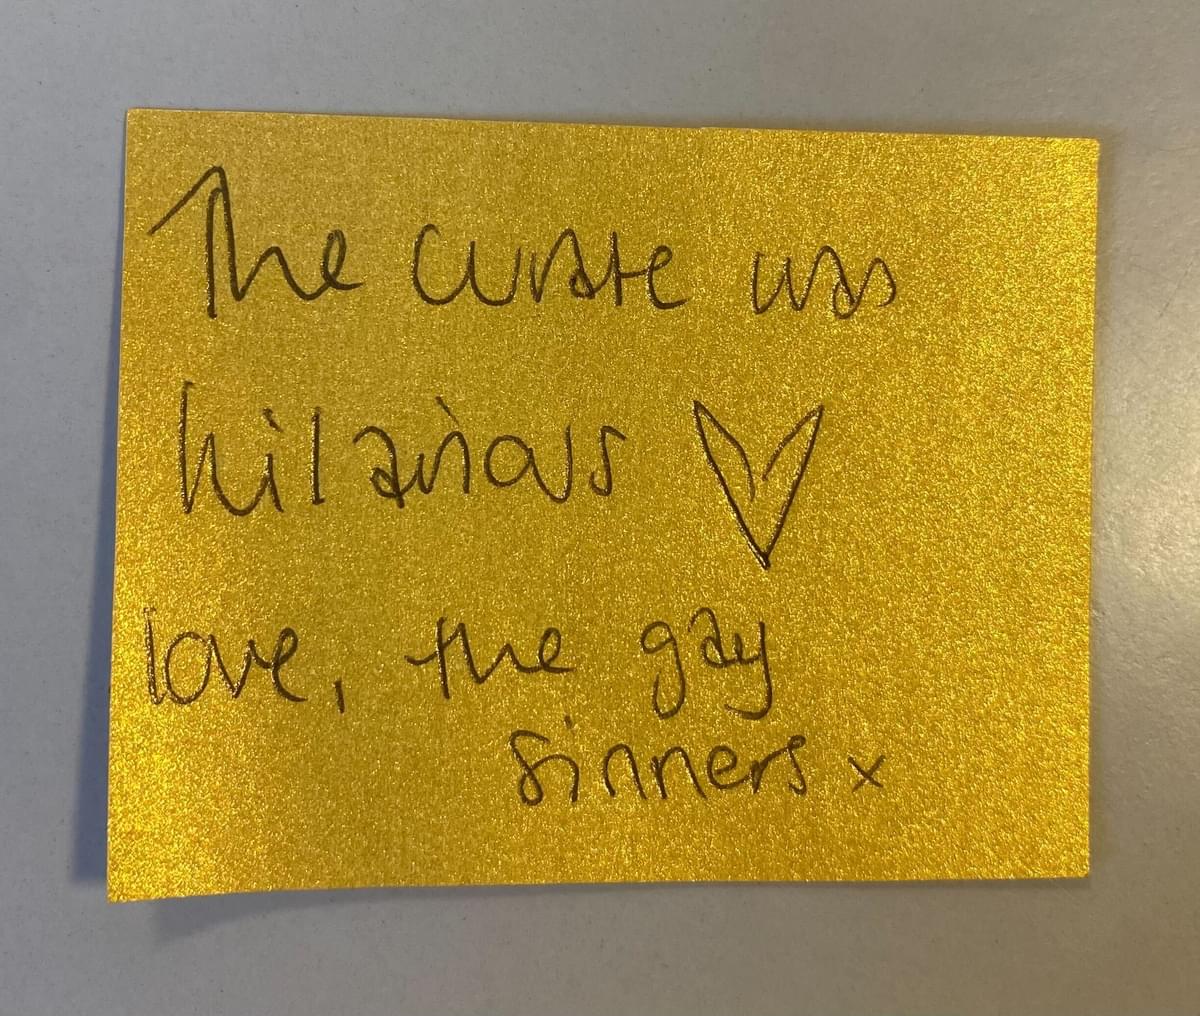 The curate was
hilarious
love, the gay
sinners x